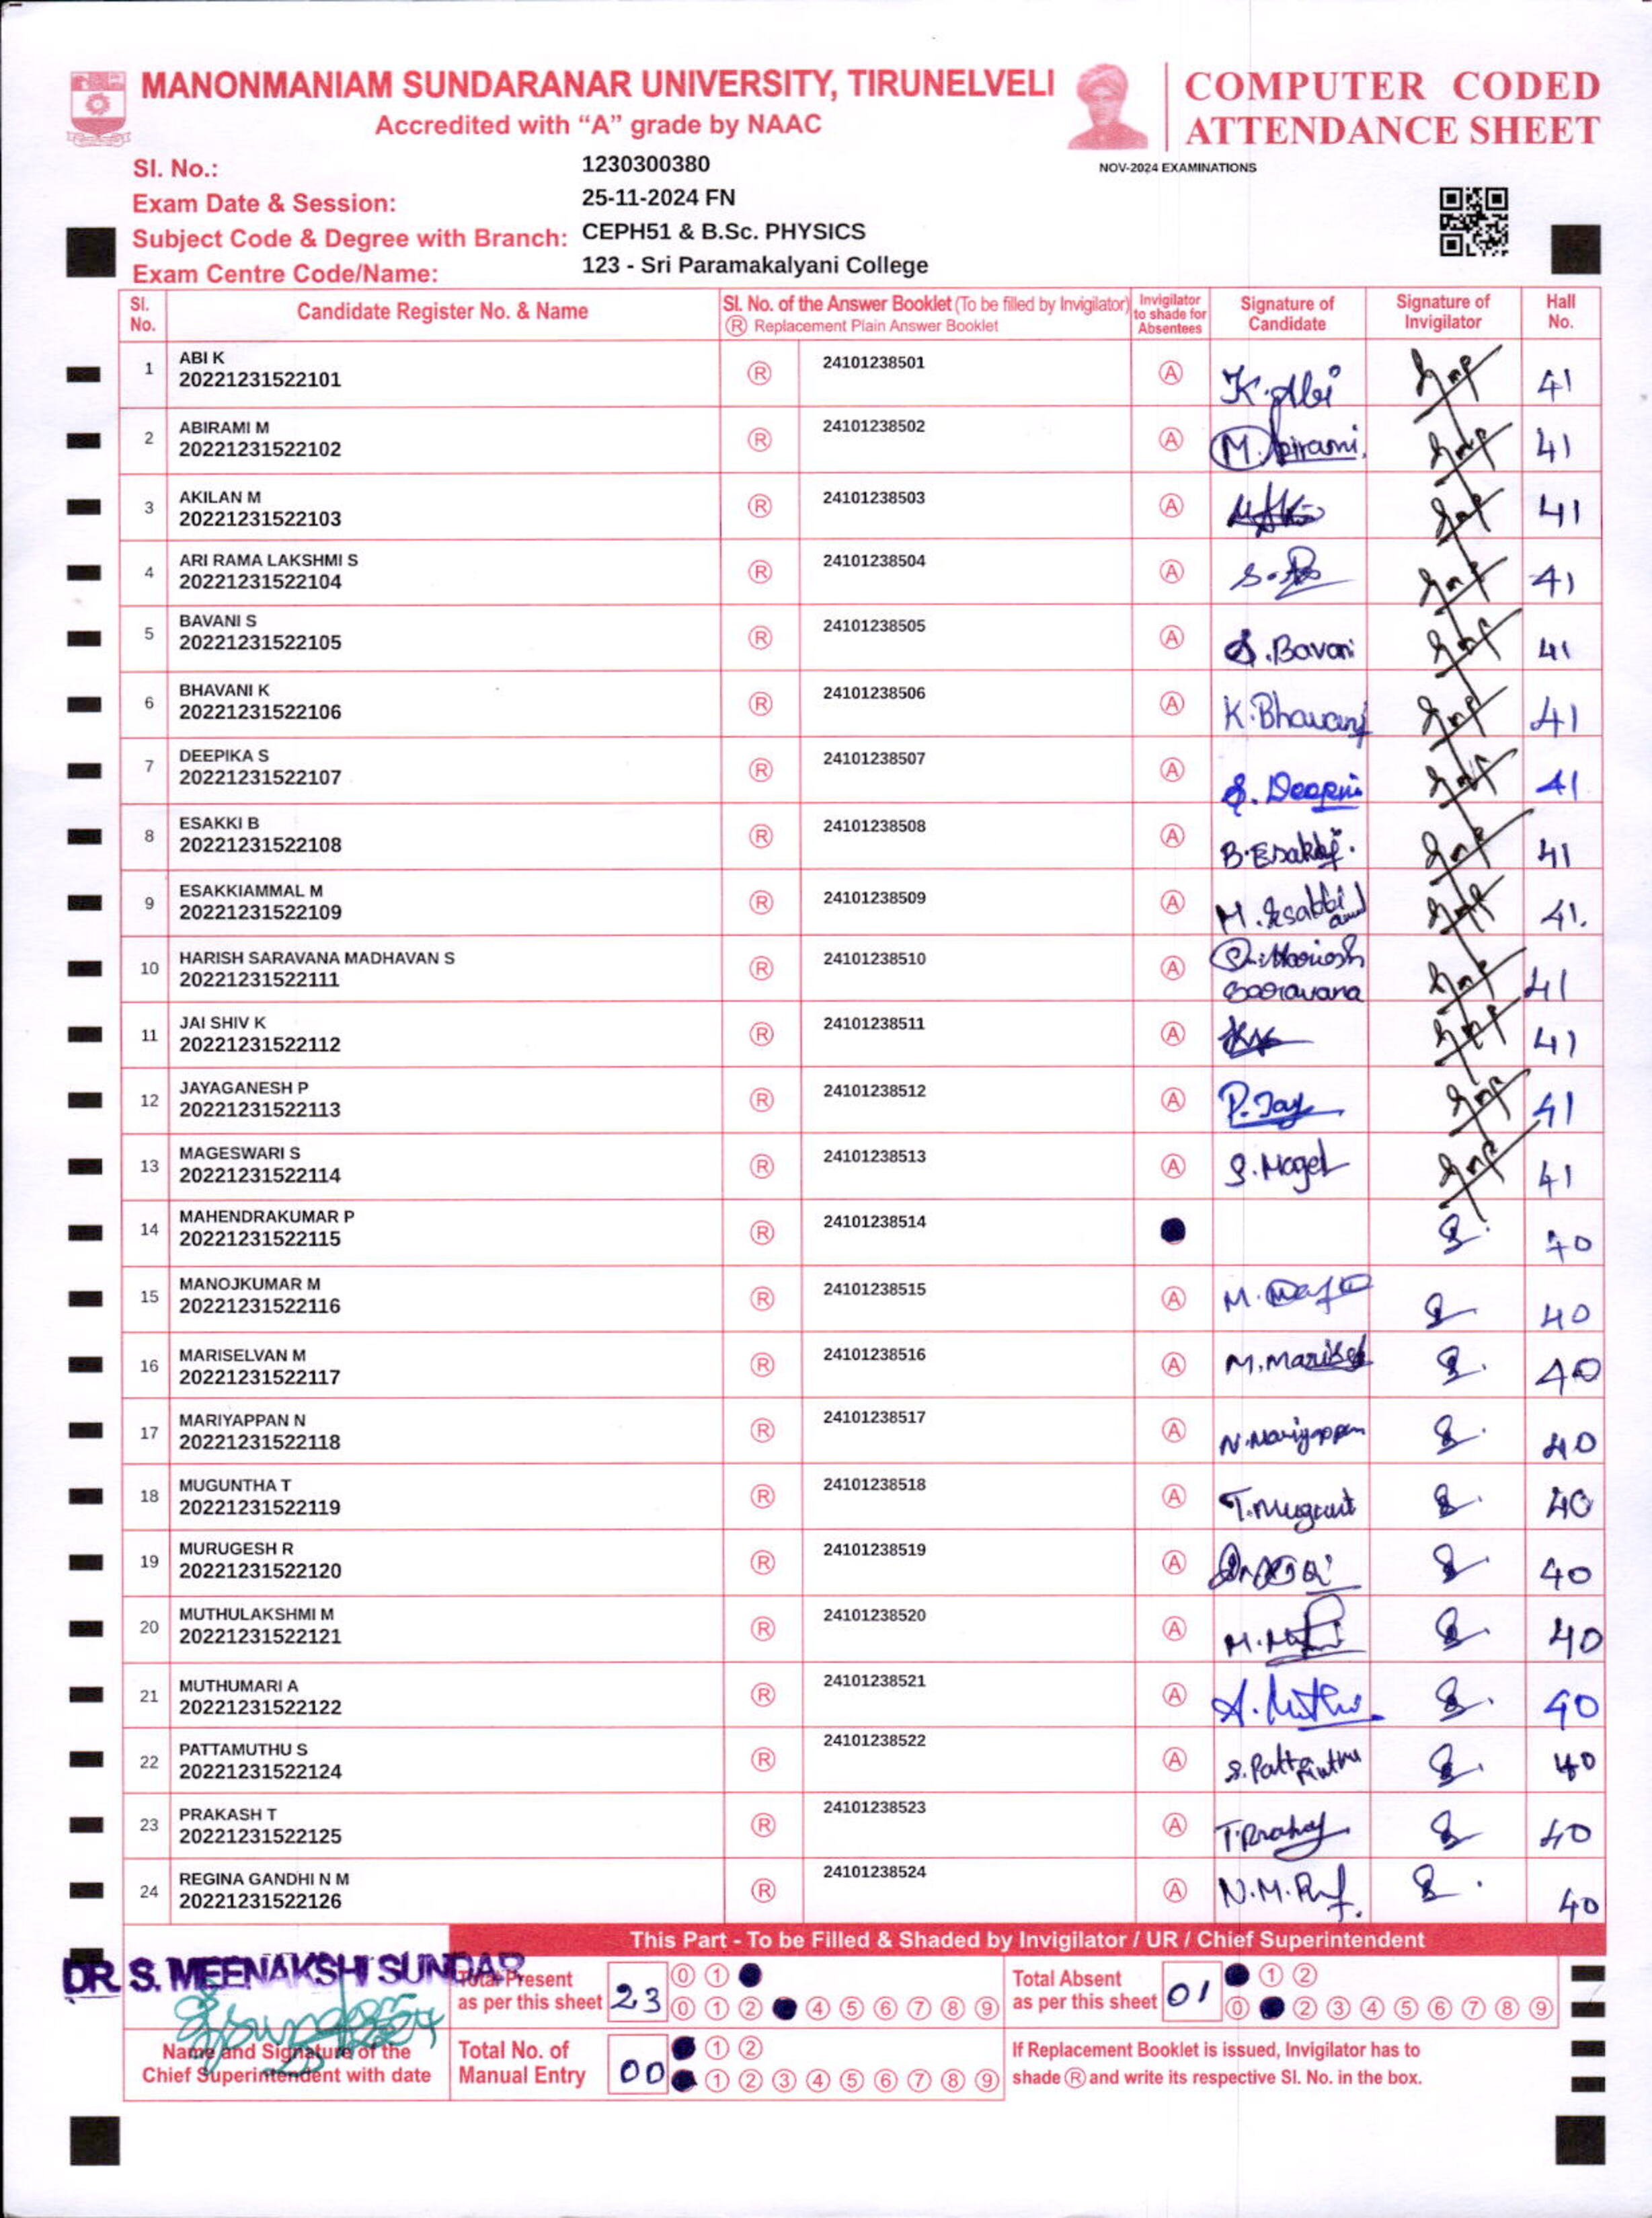 MANONMANIAM SUNDARANAR UNIVERSITY, TIRUNELVELI
Accredited with “A” grade by NAAC
COMPUTER CODED
ATTENDANCE SHEET
NOV-2024 EXAMINATIONS
Sl. No.: 1230300380
Exam Date & Session: 25-11-2024 FN
Subject Code & Degree with Branch: CEPH51 & B.Sc. PHYSICS
Exam Centre Code/Name: 123 - Sri Paramakalyani College
Sl. No. Candidate Register No. & Name Sl. No. of the Answer Booklet (To be filled by Invigilator) Ⓡ Replacement Plain Answer Booklet Invigilator to shade for Absentees Signature of Candidate Signature of Invigilator Hall No.
1 ABI K 20221231522101 Ⓡ 24101238501 Ⓐ K. Abi 41
2 ABIRAMI M 20221231522102 Ⓡ 24101238502 Ⓐ M. Abirami. 41
3 AKILAN M 20221231522103 Ⓡ 24101238503 Ⓐ 41
4 ARI RAMA LAKSHMI S 20221231522104 Ⓡ 24101238504 Ⓐ 41
5 BAVANI S 20221231522105 Ⓡ 24101238505 Ⓐ S. Bavani 41
6 BHAVANI K 20221231522106 Ⓡ 24101238506 Ⓐ K. Bhavani 41
7 DEEPIKA S 20221231522107 Ⓡ 24101238507 Ⓐ 41
8 ESAKKI B 20221231522108 Ⓡ 24101238508 Ⓐ B. Esakki. 41
9 ESAKKIAMMAL M 20221231522109 Ⓡ 24101238509 Ⓐ 41.
10 HARISH SARAVANA MADHAVAN S 20221231522111 Ⓡ 24101238510 Ⓐ S. Harish Saravana 41
11 JAI SHIV K 20221231522112 Ⓡ 24101238511 Ⓐ 41
12 JAYAGANESH P 20221231522113 Ⓡ 24101238512 Ⓐ P. Jay 41
13 MAGESWARI S 20221231522114 Ⓡ 24101238513 Ⓐ S. Mage 41
14 MAHENDRAKUMAR P 20221231522115 Ⓡ 24101238514 40
15 MANOJKUMAR M 20221231522116 Ⓡ 24101238515 Ⓐ 40
16 MARISELVAN M 20221231522117 Ⓡ 24101238516 Ⓐ M. Marisel 40
17 MARIYAPPAN N 20221231522118 Ⓡ 24101238517 Ⓐ N. Mariyappan 40
18 MUGUNTHA T 20221231522119 Ⓡ 24101238518 Ⓐ 40
19 MURUGESH R 20221231522120 Ⓡ 24101238519 Ⓐ 40
20 MUTHULAKSHMI M 20221231522121 Ⓡ 24101238520 Ⓐ 40
21 MUTHUMARI A 20221231522122 Ⓡ 24101238521 Ⓐ A. Muthu 40
22 PATTAMUTHU S 20221231522124 Ⓡ 24101238522 Ⓐ S. Pattamuthu 40
23 PRAKASH T 20221231522125 Ⓡ 24101238523 Ⓐ 40
24 REGINA GANDHI N M 20221231522126 Ⓡ 24101238524 Ⓐ 40
This Part - To be Filled & Shaded by Invigilator / UR / Chief Superintendent
DR. S. MEENAKSHI SUNDAR
Name and Signature of the
Chief Superintendent with date
Total Present as per this sheet 23
0 1
0 1 2 4 5 6 7 8 9
Total Absent as per this sheet 01
1 2
0 2 3 4 5 6 7 8 9
Total No. of Manual Entry 00
1 2
1 2 3 4 5 6 7 8 9
If Replacement Booklet is issued, Invigilator has to
shade Ⓡ and write its respective Sl. No. in the box.